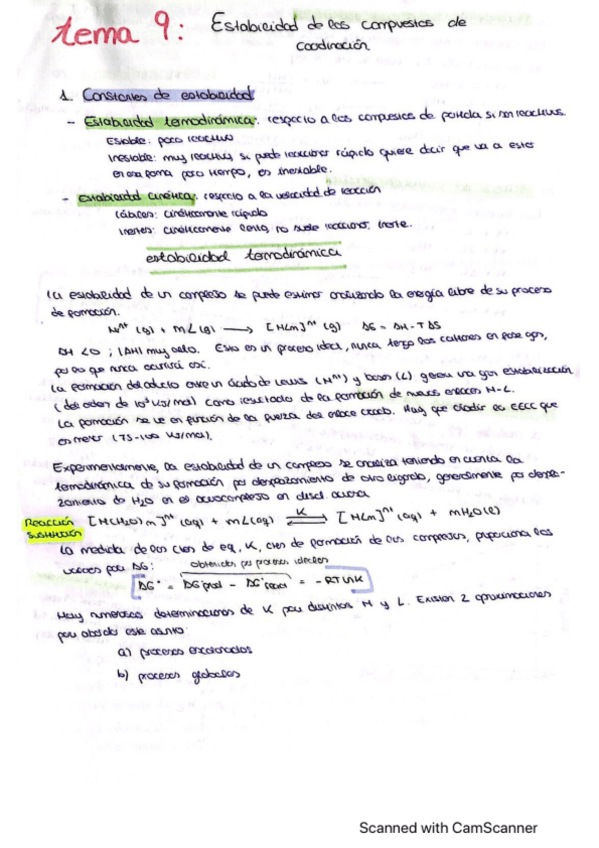 tema 9: Estabilidad de los compuestos de
coordinación
1. Constantes de estabilidad
- Estabilidad termodinámica: respecto a los compuestos de partida si son reactivos.
Estable: poco reactivo
Inestable: muy reactivo, si puede reaccionar rápido quiere decir que va a estar
en esa forma poco tiempo, es inestable.
- estabilidad cinética: respecto a la velocidad de reacción
lábiles: cinéticamente rápido
Inertes: cinéticamente lento, no suele reaccionar, inerte.
estabilidad termodinámica
La estabilidad de un complejo se puede estimar analizando la energía libre de su proceso
de formación.
Mⁿ⁺ (g) + mL(g) → [MLm]ⁿ⁺ (g) ΔG = ΔH - TΔS
ΔH < 0 ; |ΔH| muy alto. Esto es un proceso ideal, nunca tengo los cationes en fase gas,
por lo que nunca ocurrirá así.
La formación del aducto entre un ácido de Lewis (Mⁿ⁺) y bases (L) genera una gran estabilización
(del orden de 10³ KJ/mol) como resultado de la formación de nuevos enlaces M-L.
La formación se ve en función de la fuerza del enlace creado. Hay que añadir es EECC que
es menor (75-100 KJ/mol).
Experimentalmente, la estabilidad de un complejo se analiza teniendo en cuenta la
termodinámica de su formación por desplazamiento de otro ligando, generalmente por despla-
zamiento de H2O en el acuocomplejo en disol. acuosa
Reacción [M(H2O)m]ⁿ⁺ (aq) + mL(aq) ⇌ K [MLm]ⁿ⁺ (aq) + mH2O(l)
sustitución
La medida de las ctes de eq, K, ctes de formación de los complejos, proporciona los
valores para ΔG: obtenidas por procesos ideales
ΔG° = ΔG°prod - ΔG°react = -RT lnK
Hay numerosas determinaciones de K para distintos M y L. Existen 2 aproximaciones
para abordar este asunto:
a) procesos escalonados
b) procesos globales
Scanned with CamScanner